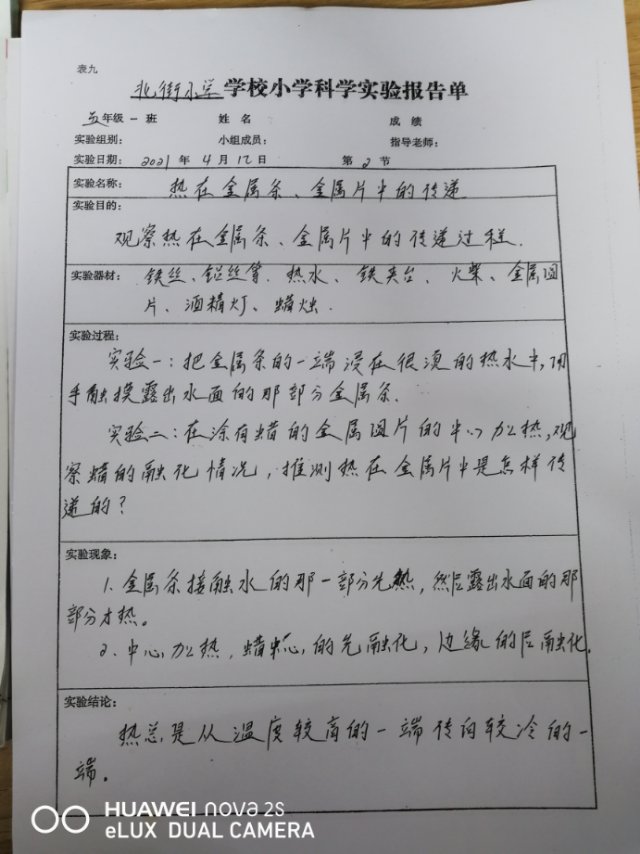 表九
北街小学学校小学科学实验报告单
五年级一班 姓名 成绩
实验组别: 小组成员: 指导老师:
实验日期: 2021年4月12日 第2节
实验名称: 热在金属条、金属片中的传递
实验目的:
观察热在金属条、金属片中的传递过程.
实验器材: 铁丝、铝丝等、热水、铁夹台、火柴、金属圆
片、酒精灯、蜡烛.
实验过程:
实验一:把金属条的一端浸在很烫的热水中,用
手触摸露出水面的那部分金属条.
实验二:在涂有蜡的金属圆片的中心加热,观
察蜡的融化情况,推测热在金属片中是怎样传
递的?
实验现象:
1. 金属条接触水的那一部分先热,然后露出水面的那
部分才热。
2、中心加热,蜡中心的先融化,边缘的后融化.
实验结论:
热总是从温度较高的一端传向较冷的一
端。
HUAWEI nova 2s
eLUX DUAL CAMERA